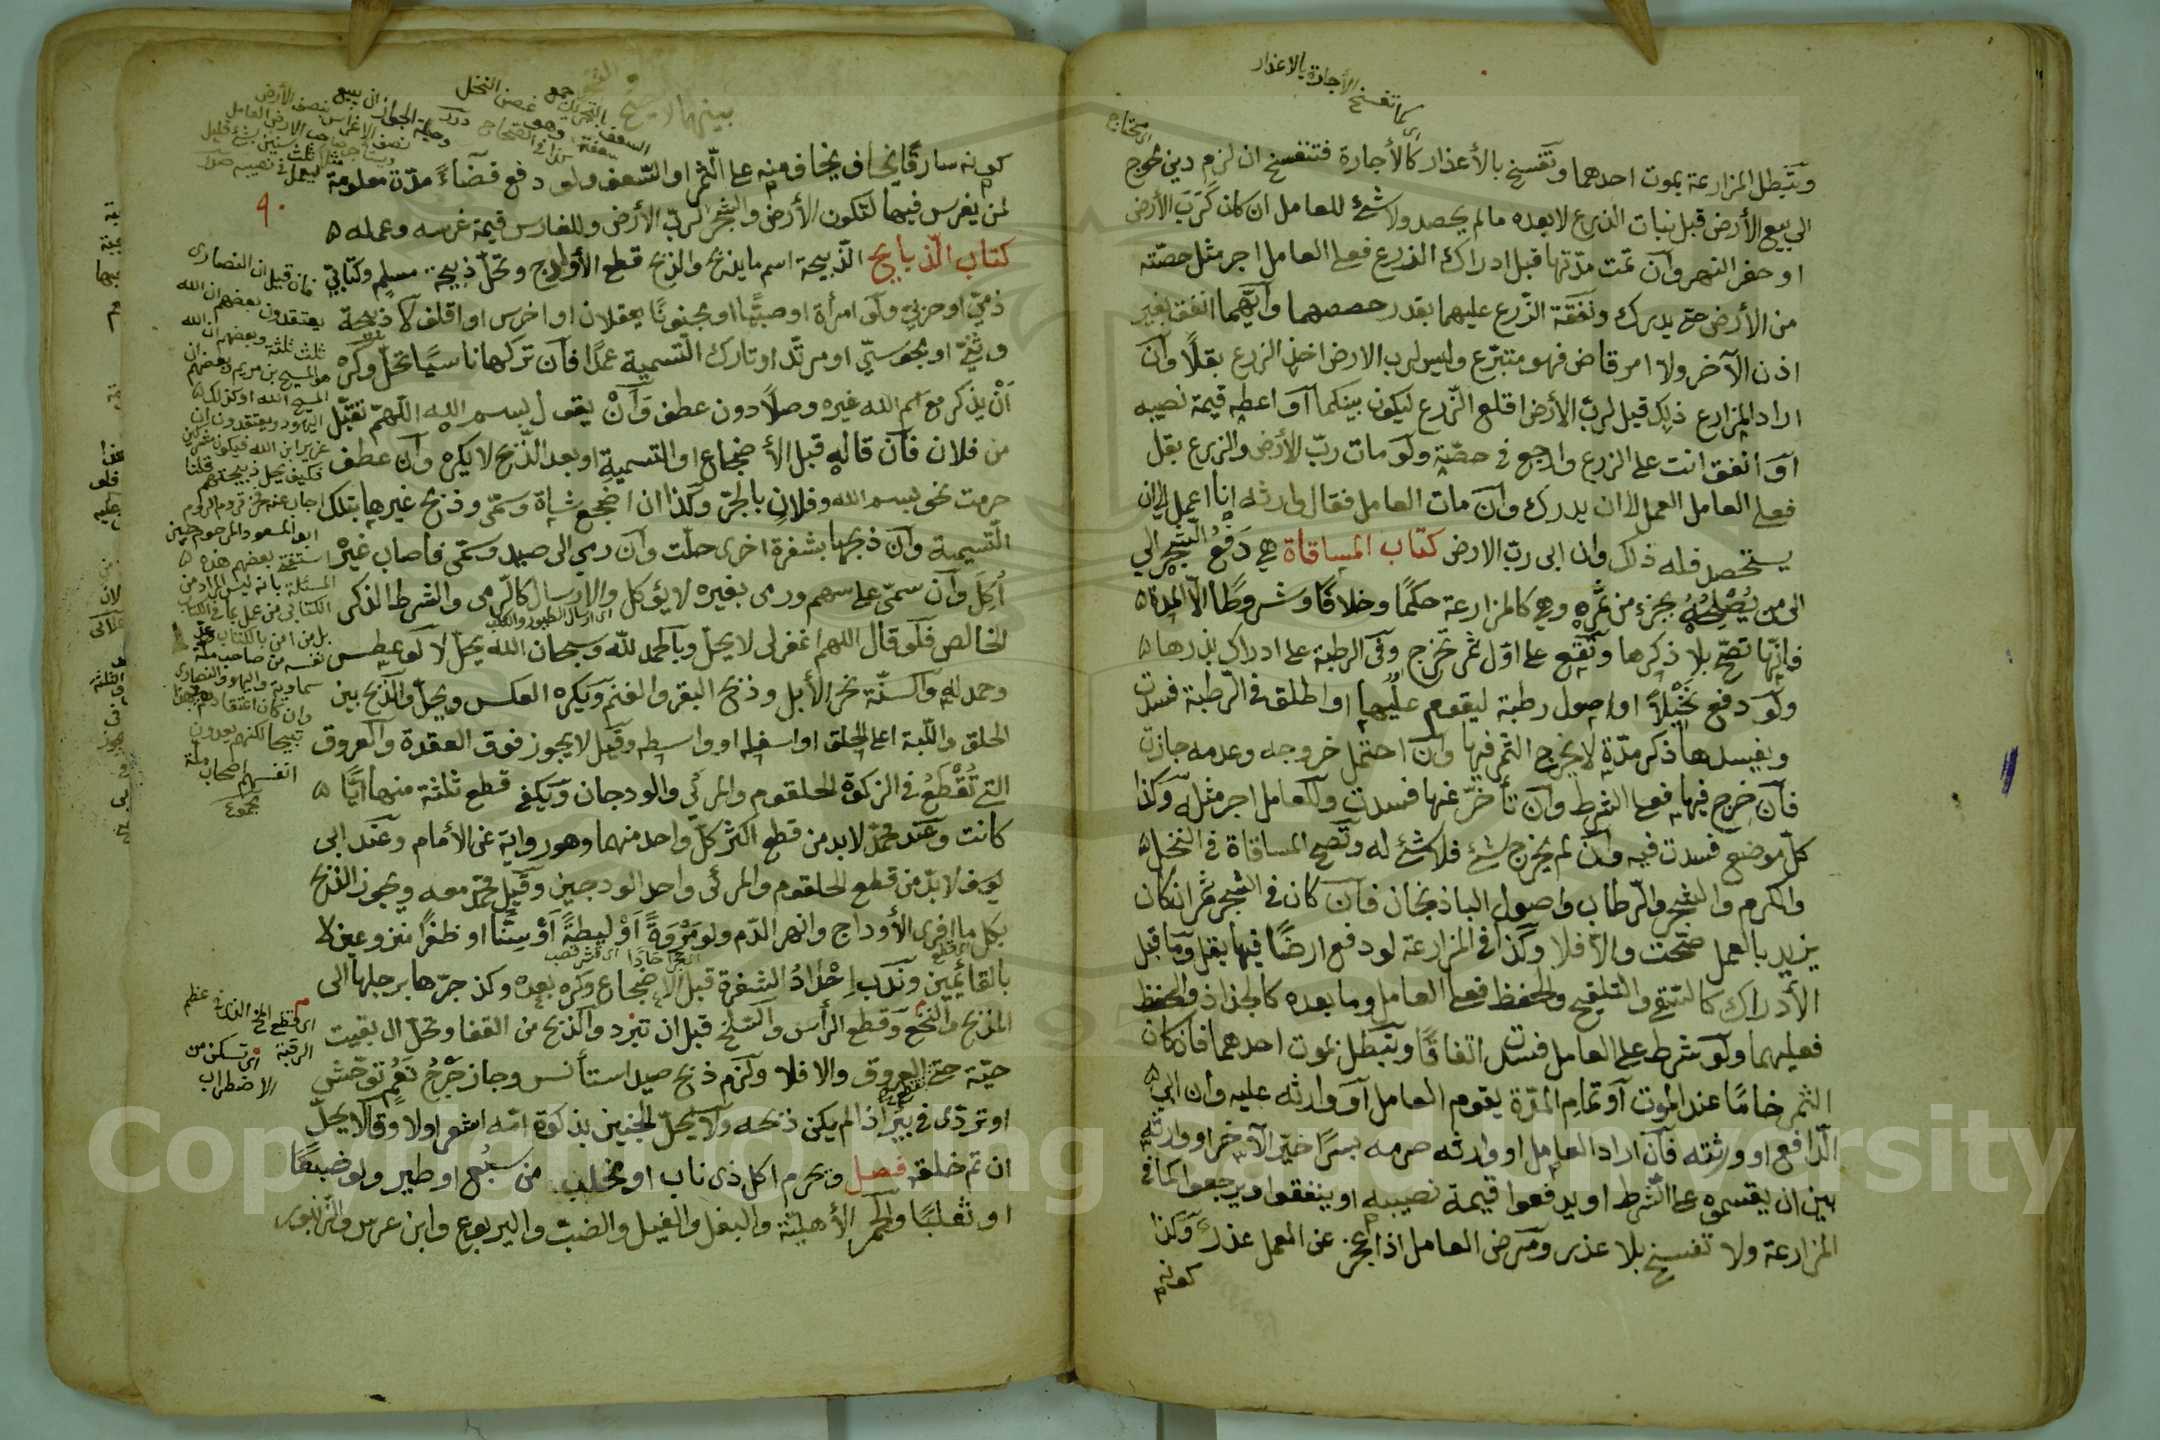 كما تفسخ الأجارة بالاعذار
اى محتاج
وتبطل المزارعة بموت احدهما وتفسخ بالأعذار كالأجارة فتنفسخ ان لزم دين محوج
الى بيع الأرض قبل نبات الزرع لا بعده ما لم يحصد ولا شئ للعامل ان كان كرب الأرض
او حفر النهر وآن تمت مدتها قبل ادراك الزرع فعلى العامل اجر مثل حصته
من الأرض حتى يدرك ونفقة الزرع عليهما بقدر حصصهما وأيهما انفق بغير
اذن الآخر ولا امر قاض فهو متبرع وليس لرب الارض اخذ الزرع بقلًا وآن
اراد المزارع ذلك قيل لرب الأرض اقلع الزرع ليكون بينكما آو اعطه قيمة نصيبه
آو انفق انت على الزرع وارجع في حصته ولو مات رب الأرض والزرع بقل
فعلى العامل العمل الى ان يدرك وآن مات العامل فقال وارثه انا اعمل الى ان
يستحصد فله ذلك وان ابى رب الارض كتاب المساقاة هي دَفْعُ الشجر الى
الى من يُصْلِحُهُ بجزء من ثمره وهي كالمزارعة حكمًا وخلافًا وشروطًا الا المدة
فانها تصح بلا ذكرها وتقع على اول ثمر تخرج وفى الرطبة على ادراك بذرها
ولو دفع نَخْيلًا او اصول رطبة ليقوم عليها او اطلق في الرطبة فسدت
ويفسدها ذكر مدة لا يخرج الثمر فيها وآن احتمل خروجه وعدمه جازت
فآن خرج فيها فعلى الشرط وآن تأخر عنها فسدت وللعامل اجر مثله وكذا
كل موضع فسدت فيه وآن لم يخرج شئ فلا شئ له وتصح المساقاة في النخل
والكرم والشجر والرطاب واصول الباذنجان فآن كان في الشجر ثمر ان كان
يزيد بالعمل صحت والا فلا وكذا في المزارعة لو دفع ارضًا فيها بقل وما قبل
الأدراك كالسقى والتلقيح والحفظ فعلى العامل وما بعده كالجذاذ والحفظ
فعليهما ولو شرط على العامل فسدت اتفاقًا وتبطل بموت احدهما فان كان
الثمر خامًا عند الموت آو تمام المدة يقوم العامل آو وارثه عليه وأن ابى
الدافع او ورثته فآن اراد العامل او وارثه صرمه بسرًا خير الآخر او وارثه
بين ان يقسموه على الشرط او يدفعوا قيمة نصيبه او ينفقوا ويرجعوا كما في
المزارعة ولا تفسخ بلا عذر ومرض العامل اذا عجز عن العمل عذر وكذا
كونه
كونه سارقًا يخاف منه على الثمر او السعف ولو دفع فضآءً مدة معلومة
لمن يغرس فيها لتكون الأرض والشجر لرب الأرض وللغارس قيمة غرسه وعمله
كتاب الذبايح الذبيحة اسم ما يذبح والذبح قطع الأوداج وتحل ذبيحة مسلم وكتابي
ذمي او حربي ولو امرأة او صبيًا او مجنونًا يعقلان او اخرس او اقلف لا ذبيحة
وثني او مجوسي او مرتد او تارك التسمية عمدًا فآن تركها ناسيًا تحل وكره
أنْ يذكر مع اسم الله غيره وصلًا دون عطف وَأنْ يقول بسم الله اللهم تقبل
من فلان فآن قاله قبل الأضجاع او التسمية او بعد الذبح لا يكره وآن عطف
حرمت نحو بسم الله وفلانٍ بالجر وكذا ان اضجع شاة وسمى وذبح غيرها بتلك
التسمية وآن ذبحها بشفرة اخرى حلت وآن رمى الى صيد وسمى فاصاب غيره
أُكِلَ وآن سمى على سهم ورمى بغيره لا يؤكل والارسال كالرمى والشرط الذكر
الخالص فلو قال اللهم اغفر لى لا يحل وبالحمد لله وسبحان الله يحل لا لو عطس
وحمد له والسنة نحر الأبل وذبح البقر والغنم ويكره العكس ويحل والذبح بين
الحلق واللبة اعلى الحلق او اسفله او واسطه وقيل لا يجوز فوق العقدة والعروق
التى تُقْطَعُ في الزكوة الحلقوم والمرئى والودجان ويكفى قطع ثلثة منها ايًّا
كانت وعند محمد لا بد من قطع اكثر كل واحد منهما وهو رواية عن الأمام وعند ابى
يوسف لا بد من قطع الحلقوم والمرئى واحد الودجين وقيل محمد معه ويجوز الذبح
بكل ما افرى الأوداج وانهر الدم ولو مَرْوَةً آوْ لِيطَةً آوْ سِنًّا او ظفرًا منزوعين لا
بالقائمين وندب إِحْدَادُ الشفرة قبل الاضجاع وكره بعده وكذ جرها برجلها الى
المذبح والنخع وقطع الرأس والسلخ قبل ان تبرد والذبح من القفا وتحل ان بقيت
حية حتى العروق والا فلا ولزم ذبح صيد استأنس وجاز جَرْحُ نَعَمٍ توحش
او تردى في بئر اذا لم يكن ذبحه ولا يحل الجنين بذكوة امه اشعر اولا وقالا يحل
ان تم خلقه فصل ويحرم اكل ذى ناب او مخلب من سبُع او طير ولو ضبعًا
او ثعلبًا والحمر الأهلية والبغل والفيل والضب واليربوع وابن عرس والزنبور
٩٠
فان قيل ان النصارى
يعتقدون بعضهم ان الله
ثالث ثلثة وبعضهم ان الله
هو المسيح بن مريم وبعضهم ان
المسيح
اليهود ويعتقدون ان
عزير ابن الله فيكون
فكيف يحل ذبيحتهم قلنا
اجاب عنه
ابو السعود المرحوم حين
استفتى بعضهم هذه
المسئلة بانه ليس المراد من
الكتابى من عمل بما في الكتاب
بل من آمن بالكتاب
نفسه من صاحب ملة
سماوية واليهود والنصارى
وان كان اعتقادهم
قبيحا لكنهم يعدون
انفسهم اصحاب ملة
اى ارسال الطيور والكلب
اى قطع المخ الذى في عظم
الرقبة
اى تسكن من
الاضطراب